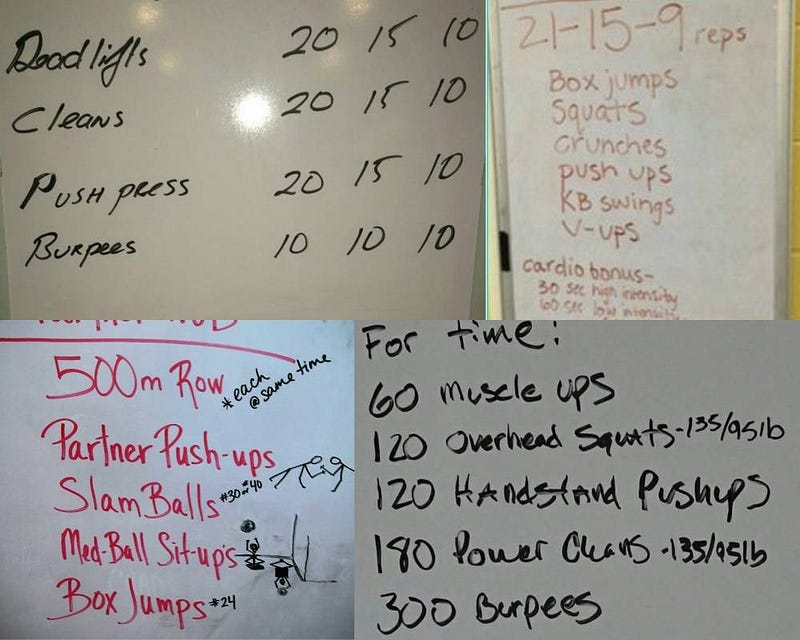 Deadlifts 20 15 10
Cleans 20 15 10
Push press 20 15 10
Burpees 10 10 10
21-15-9 reps
Box jumps
Squats
crunches
push ups
KB swings
V-ups
cardio bonus-
30 sec high intensity
60 sec low intensity
500m Row *each
@same time
Partner Push-ups
Slam Balls #30 or #40
Med-Ball Sit-ups
Box Jumps #24
For time:
60 muscle ups
120 Overhead Squats-135/95lb
120 Handstand Pushups
180 Power Cleans -135/95lb
300 Burpees